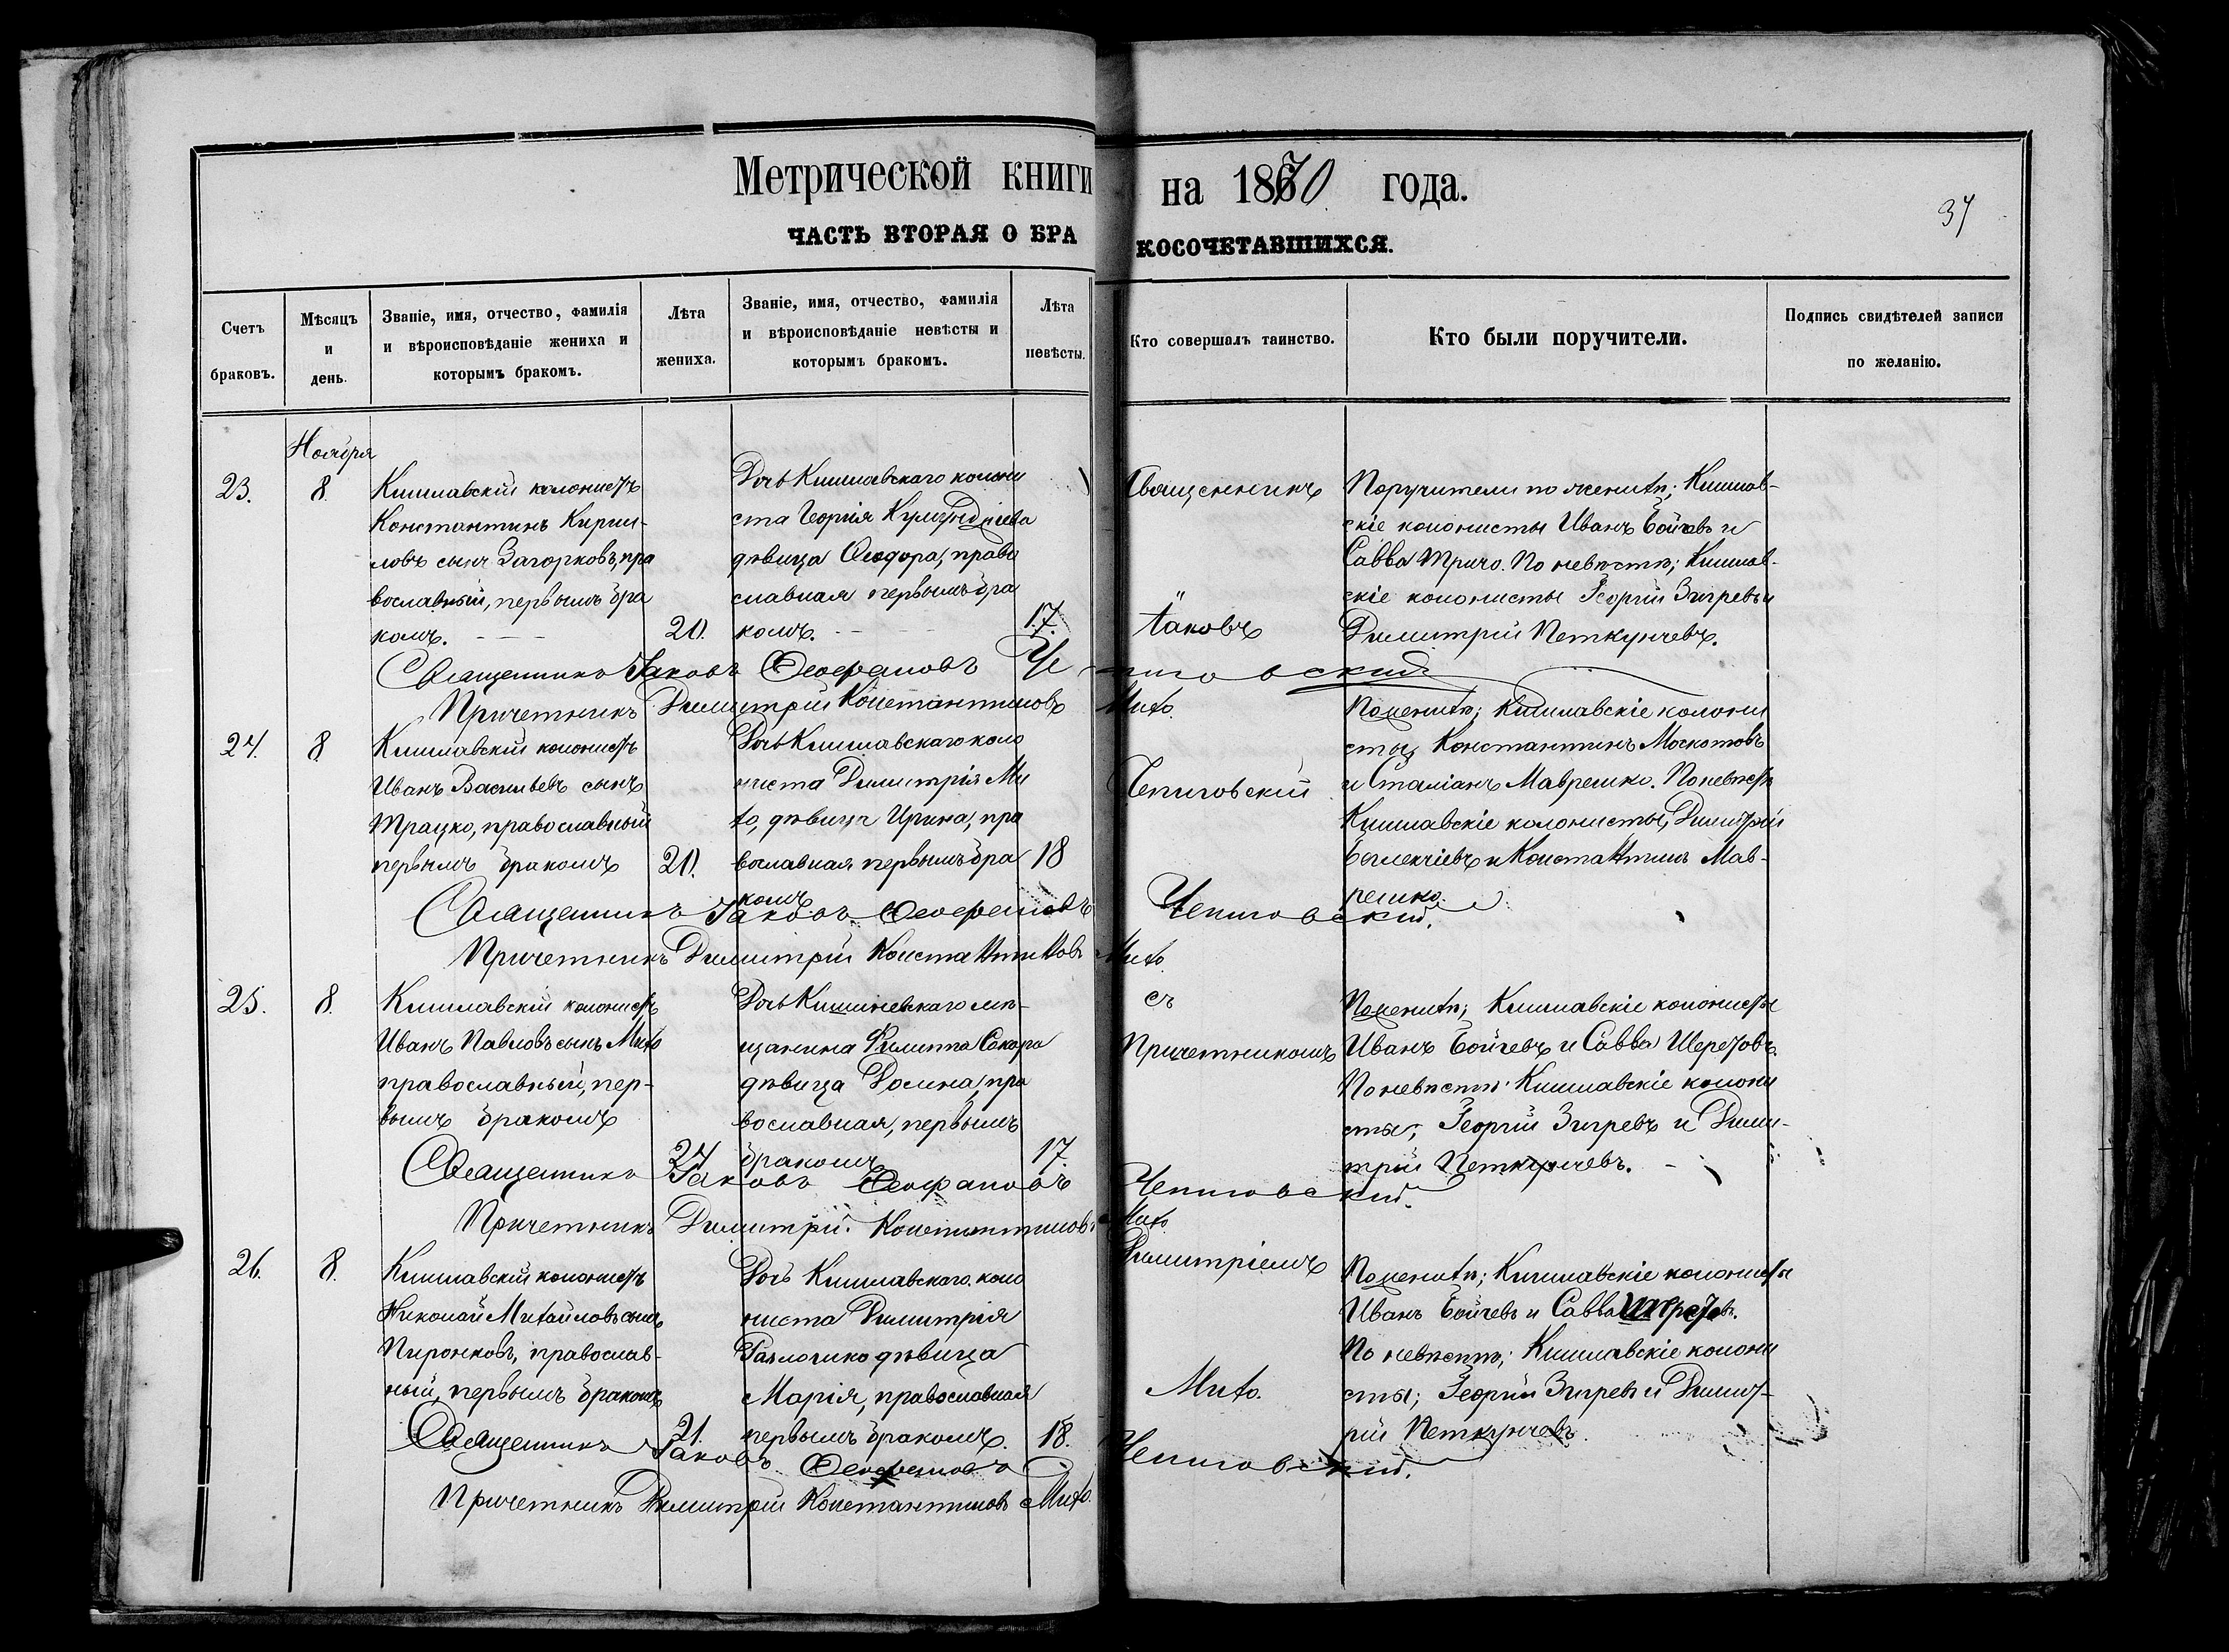 Метрической книги на 1870 года.
37
ЧАСТЬ ВТОРАЯ О БРАКОСОЧЕТАВШИХСЯ.
Счетъ браковъ.
Мѣсяцъ и день.
Званіе, имя, отчество, фамилія
и вѣроисповѣданіе жениха и
которымъ бракомъ.
Лѣта жениха.
Званіе, имя, отчество, фамилія
и вѣроисповѣданіе невѣсты и
которымъ бракомъ.
Лѣта невѣсты.
Кто совершалъ таинство.
Кто были поручители.
Подпись свидѣтелей записи
по желанію.
Ноября
23.
8.
Кишлавскій колонистъ
Константинъ Кирил-
ловъ сынъ Загорковъ, пра
вославный, первымъ бра
комъ.
20.
Дочь Кишлавскаго колони
ста Георгія
дѣвица Ѳеодора, право
славная первымъ бра
комъ.
17.
Священникъ
Іаковъ
Поручители по женихѣ; Кишлав-
скіе колонисты Иванъ Бойчевъ и
Савва Трично. По невѣстѣ; Кишлав-
скіе колонисты Георгій Зигревъ и
Димитрій Петкунчевъ.
Священникъ Іаковъ Ѳеофановъ Чепиговскій
Причетникъ Димитрій Константиновъ Михо.
24.
8
Кишлавскій колонистъ
Иванъ Васильевъ сынъ
Трацко, православный
первымъ бракомъ
20.
Дочь Кишлавскаго коло
ниста Димитрія Ми
хо, дѣвица Ирина, пра
вославная первымъ бра
комъ
18
Чепиговскій
По женихѣ; Кишлавскіе колони
сты, Константинъ Москотовъ
и Сталіанъ Маврешко. По невѣстѣ
Кишлавскіе колонисты, Димитрій
и Константинъ Мав-
решко.
Священникъ Іаковъ Ѳеофановъ Чепиговскій.
Причетникъ Димитрій Константиновъ Михо.
25.
8.
Кишлавскій колонистъ
Иванъ Павловъ сынъ Михо
православный, пер-
вымъ бракомъ
24
Дочь Кишиневскаго мѣ-
щанина Филиппа Сакара
дѣвица Домна, пра
вославная, первымъ
бракомъ
17.
съ
Причетникомъ
По женихѣ; Кишлавскіе колонисты
Иванъ Бойчевъ и Савва Шеретовъ.
По невѣстѣ: Кишлавскіе колони
сты; Георгій Зигревъ и Дими-
трій Петкунчевъ.
Священникъ Іаковъ Ѳеофановъ Чепиговскій.
Причетникъ Димитрій Константиновъ Михо
26.
8.
Кишлавскій колонистъ
Николай Михайловъ сынъ
Пиронковъ, православ-
ный, первымъ бракомъ
21.
Дочь Кишлавскаго коло
ниста Димитрія
дѣвица
Марія, православная
первымъ бракомъ.
18.
Димитріемъ
Михо.
По женихѣ; Кишлавскіе колонисты
Иванъ Бойчевъ и Савва Шеретовъ.
По невѣстѣ; Кишлавскіе колони
сты; Георгій Зигревъ и Димит-
рій Петкунчевъ.
Священникъ Іаковъ Ѳеофановъ Чепиговскій.
Причетникъ Димитрій Константиновъ Михо.